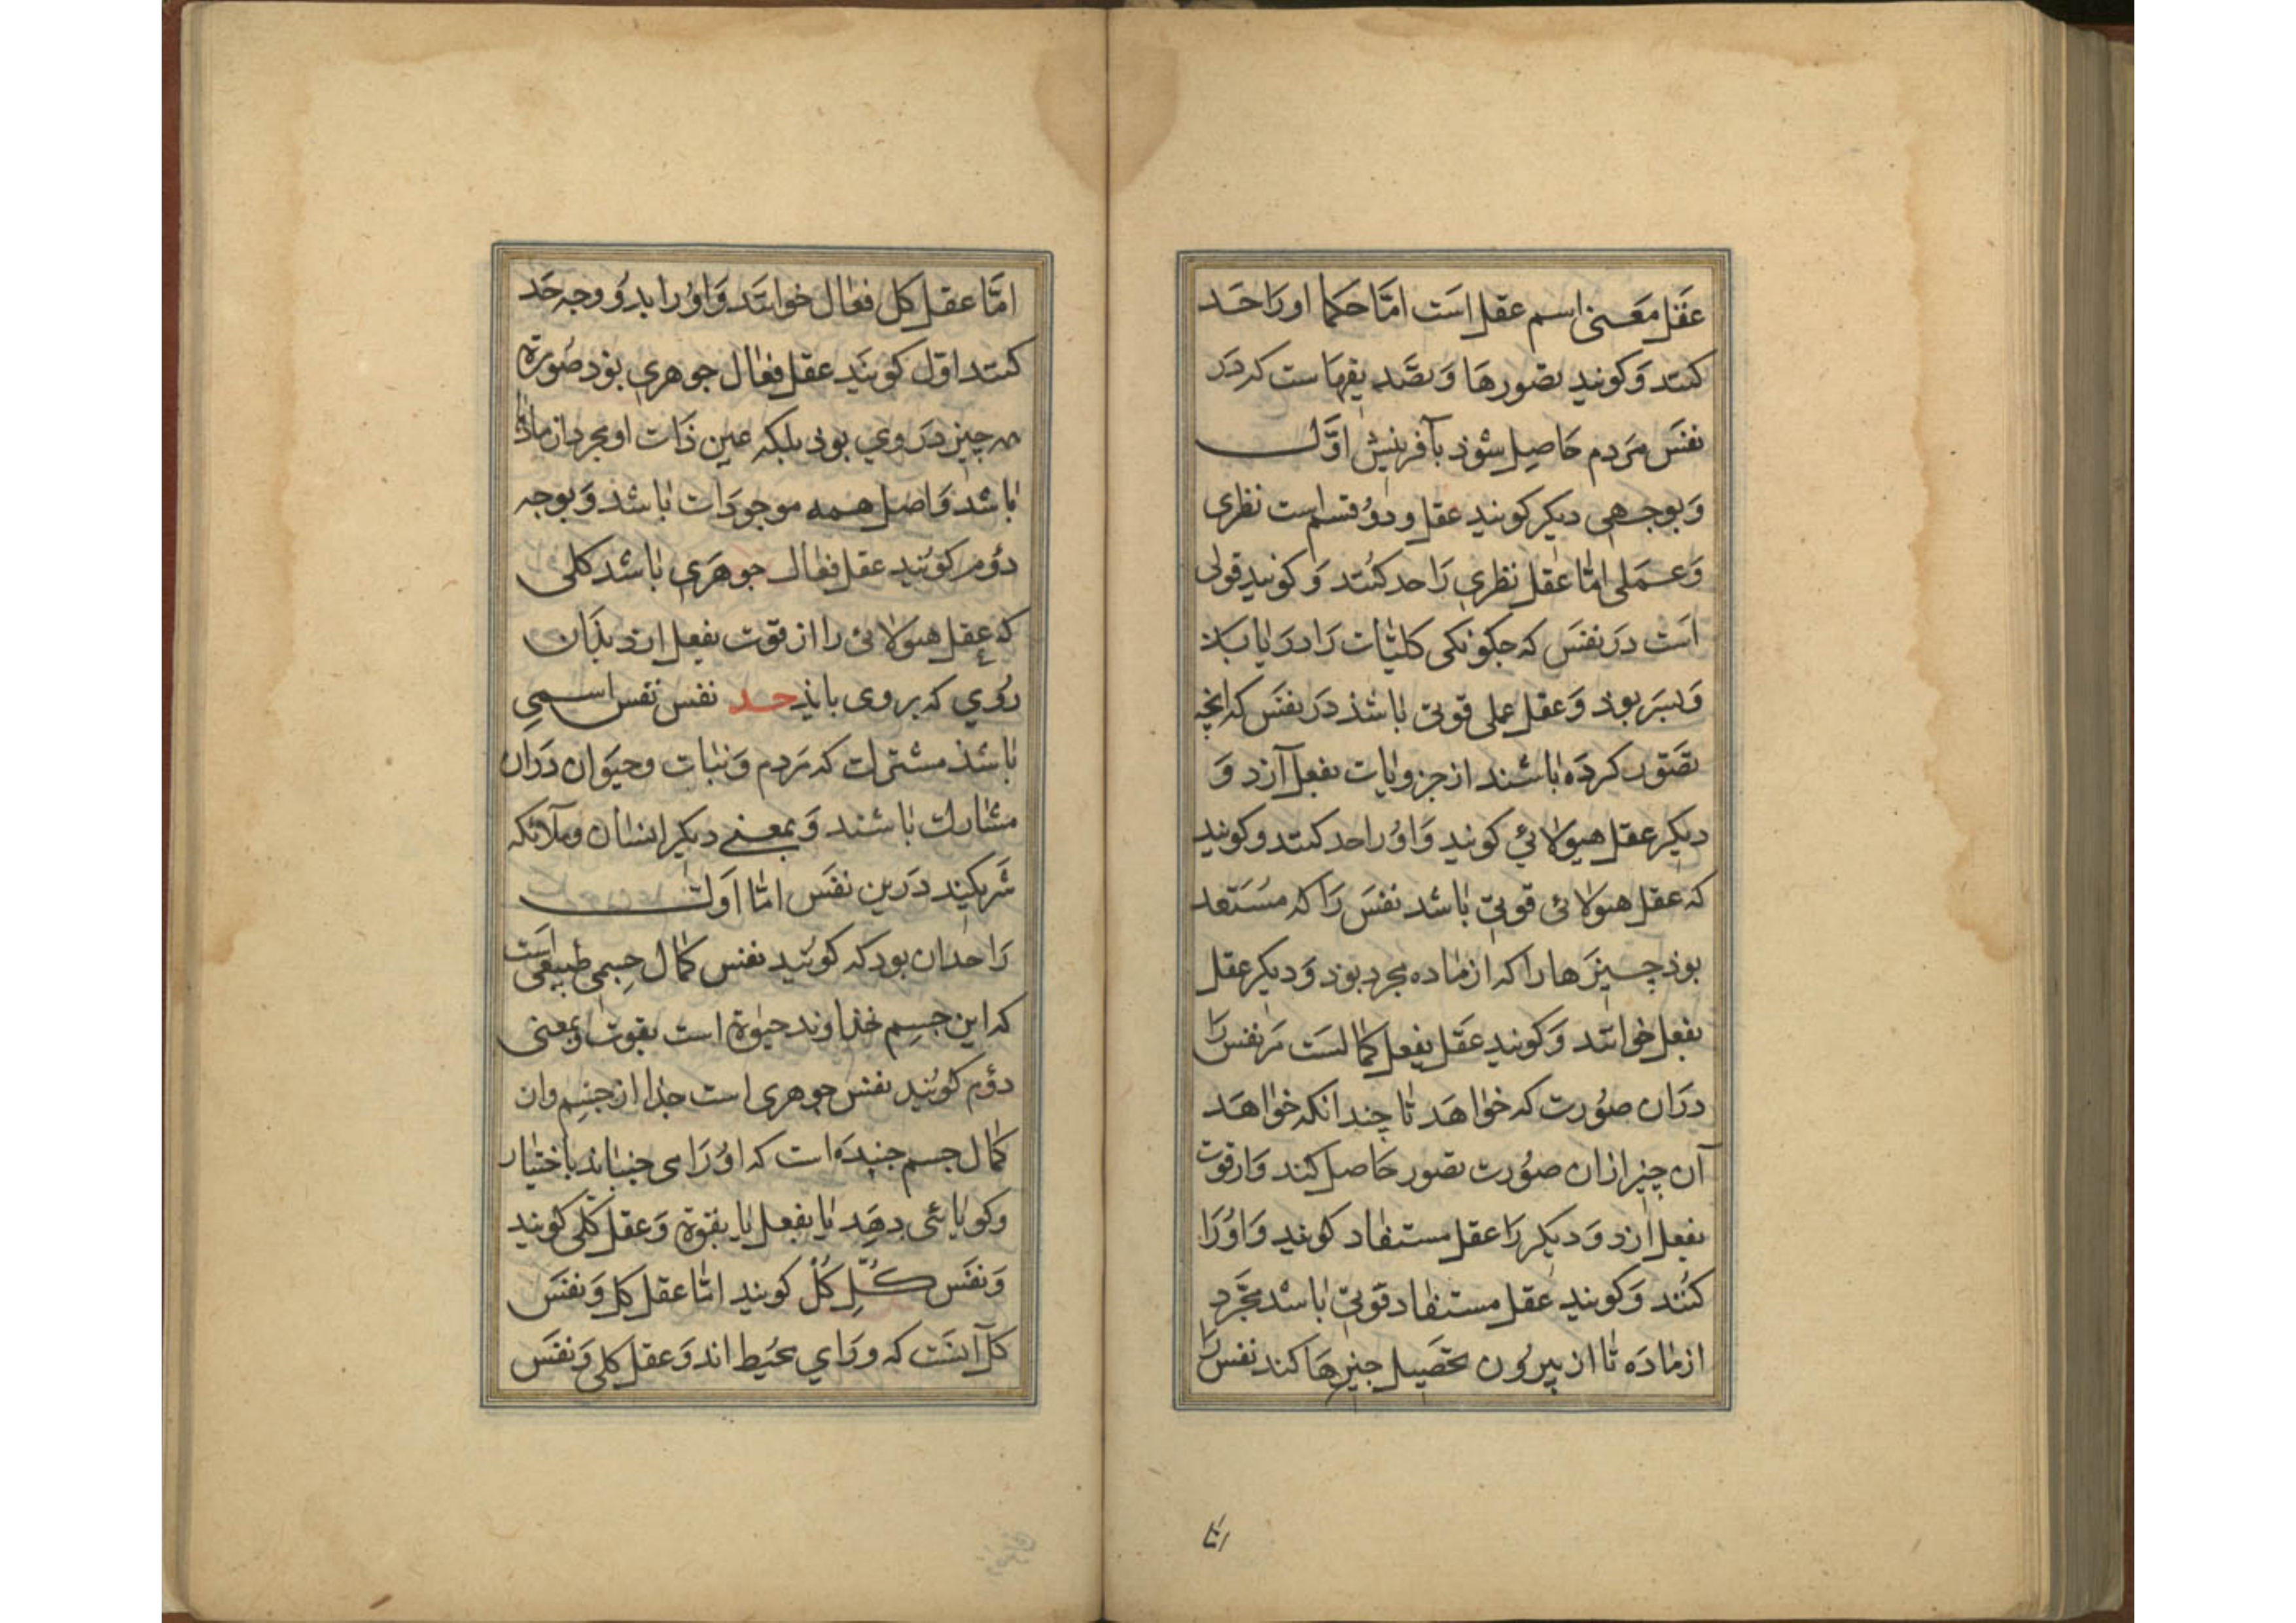 عقل معنی اسم عقل است امّا حکما او را حد
کنند و کویند تصورها و تصدیقهاست که در
نفس مردم حاصل شوذ بآفرینش اوّل
و بوجهی دیکر کویند عقل و دو قسم است نظری
و عملی امّا عقل نظری را حد کنند و کویند قوتی
است در نفس که چکونکی کلیّات را دریابد
و بس بود و عقل عملی قوتی باشذ در نفس که انچه
تصوّر کرده باشند از جزویات بفعل آرد و
دیکر عقل هیولائی کویند و او را حد کنند و کویند
که عقل هیولائی قوتی باشد نفس را که مستعد
بوذ چیزها را که از ماده مجرد بوذ و دیکر عقل
بفعل خوانند و کویند عقل بفعل کمالست مر نفس را
دران صورت که خواهد تا چندانکه خواهد
آن چیز ازان صورت تصور حاصل کند و از قوت
بفعل ارد و دیکر را عقل مستفاد کویند و او را
کنند و کویند عقل مستفاد قوتی باشد مجرّد
از ماده تا از بیرون تحصیل چیزها کند نفس را
امّا
امّا عقل کل فعال خوانند و او را بدو وجه حد
کنند اوّل کویند عقل فعال جوهری بود صورة
هر چیز در وی بوذ بلکه عین ذات او مجرد از ماده
باشد و اصل همه موجودات باشذ و بوجه
دوم کویند عقل فعال جوهری باشد کلی
که عقل هیولائی را از قوت بفعل ارد بذان
روی که بر وی باید حد نفس نفس اسمی
باشذ مشترک که مردم و نبات و حیوان دران
مشارک باشند و بمعنی دیکر انسان و ملائکه
شریکند درین نفس امّا اول
را حد ان بود که کویند نفس کمال جسمی طبیعی است
که این جسم خذاوند حیوة است بقوت و بمعنی
دوم کویند نفس جوهری است جذا از جسم وان
کمال جسم جنبده است که او را می جنباند باختیار
وکویائی دهد یا بفعل یا بقوة و عقل کلی کویند
و نفس کلّ کل کویند امّا عقل کل و نفس
کل آنست که ورای محیط اند و عقل کلی و نفس